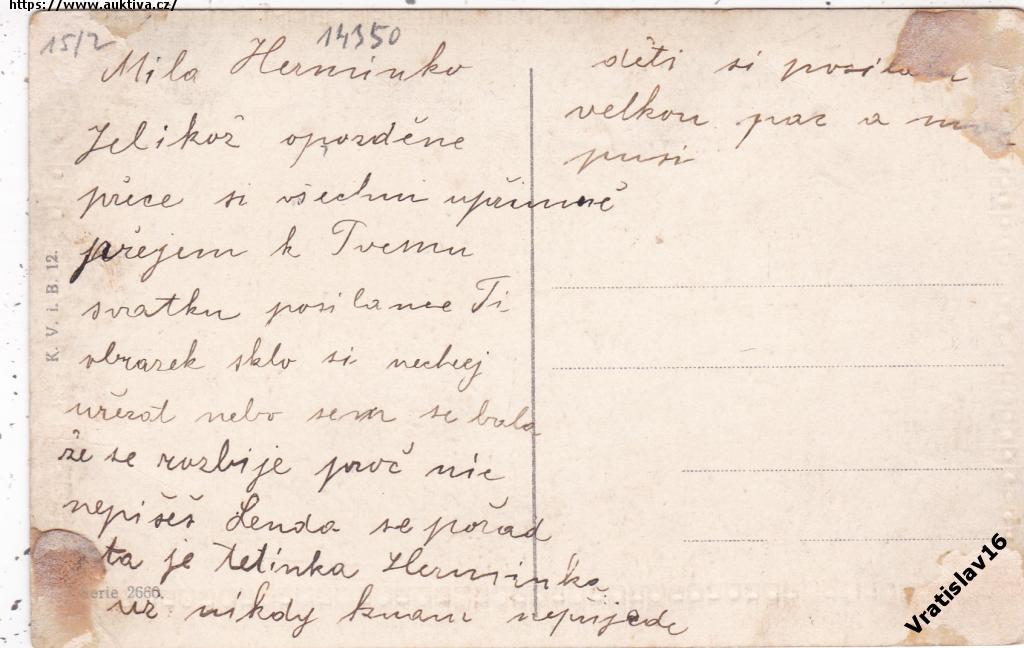 https://www.auktiva.cz/
15/2
14350
Mila Herminko
Jelikož opozděne
přece si všechni upřimně
přejem k Tvemu
svatku posilame Ti
obrazek sklo si nechej
uřezat nebo sem se bala
že se rozbije proč nic
nepišeš Lenda se pořad
ta je tetinka Herminka
už nikdy knam nepřijede
děti si posilam
velkou pac a
pusi
K. V. i. B. 12.
Serie 2660.
Vratislav16